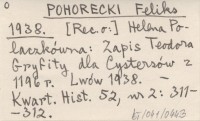 POHORECKI Feliks
1938. [Rec. o:] Helena Po-
laczkówna: Zapis Teodora
Gryfity dla Cystersów z
1196 r. Lwów 1938. -
Kwart. Hist. 52, nr 2: 311-
-312.